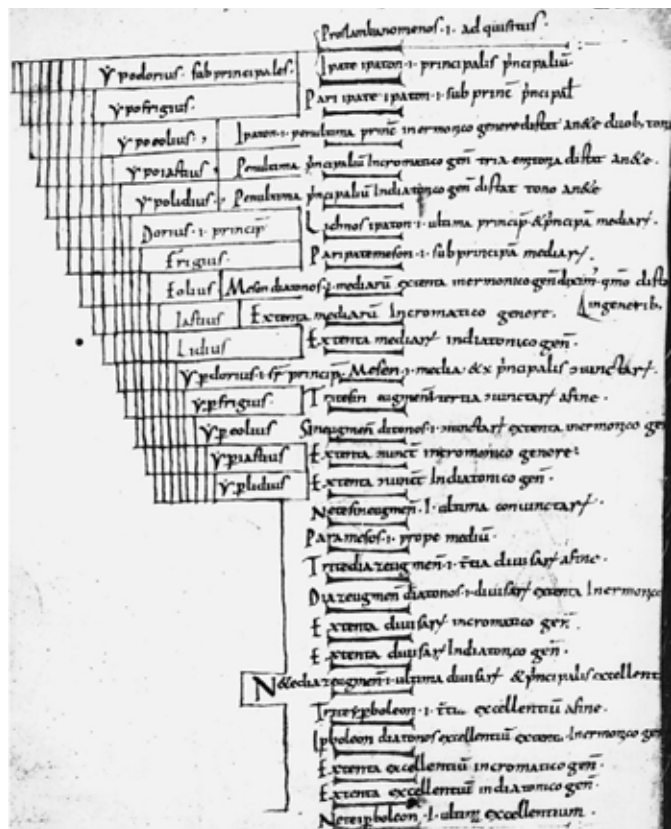 Proslanbanomenos · i · ad quisitus ·
ẏpodorius · subprincipales · Ipate ipaton · i · principalis p̄ncipaliū
ẏpofrigius Pari ipate ipaton · i · sub princ̄ p̄ncipal̄
ẏpoeolius , Ipaton · i · penultima princ̄ inermonico genere distat an&e duob; tono
ẏpoiastius , Penultima p̄ncipaliū Incromatico gen̄ tria distat an&e ·
ẏpolidius , Penultima p̄ncipaliū Indiatonico gen̄ distat tono an&e
Dorius · i · princip̄ Lichnos ipaton · i · ultima princip̄ & p̄ncipa mediarꝝ
frigius · Paripatemeson · i · sub principa mediarꝝ ·
Eolius Mesen diatonos · i · mediarū extenta inermonico gen̄ dista
Iastius Extenta mediarū Incromatico genere · ingenerib;
Lidius Extenta mediarꝝ indiatonico gen̄ ·
ẏp̄dorius · i · princip̄ Mesen · i · media & x p̄ncipalis iunctarꝝ ·
ẏp̄frigius · Tritesin eugmen̄ tertia iunctarꝝ afine ·
ẏp̄eolius Sineugmen̄ ditonos · i · iunctarꝝ extenta inermonico gen
ẏp̄iastius Extenta iunct̄ incromonico genere :
ẏp̄lidius Extenta iunct̄ Indiatonico gen̄ ·
Netesineugmen̄ · I · ultima coniunctarꝝ ·
Paramesos · i · prope mediū ·
Tritediazeugmen̄ · i · t̄tia diuisarꝝ afine ·
Diazeugmen̄ diatonos · i · diuisarꝝ extenta Inermonico
Extenta diuisarꝝ incromatico gen̄ ·
Extenta diuisarꝝ Indiatonico gen̄ ·
N&ediazeugmen̄ · i · ultima diuisarꝝ & p̄ncipalis excellenti
Triteẏp̄boleon · i · excellentiū afine ·
Ip̄boleon diatonos excellentiū exten̄ · Inermonico gen
Extenta excellentiū incromatico gen̄ ·
Extenta excellentiū indiatonico gen̄ ·
Neteip̄boleon · I · ultim̄ excellentium ·